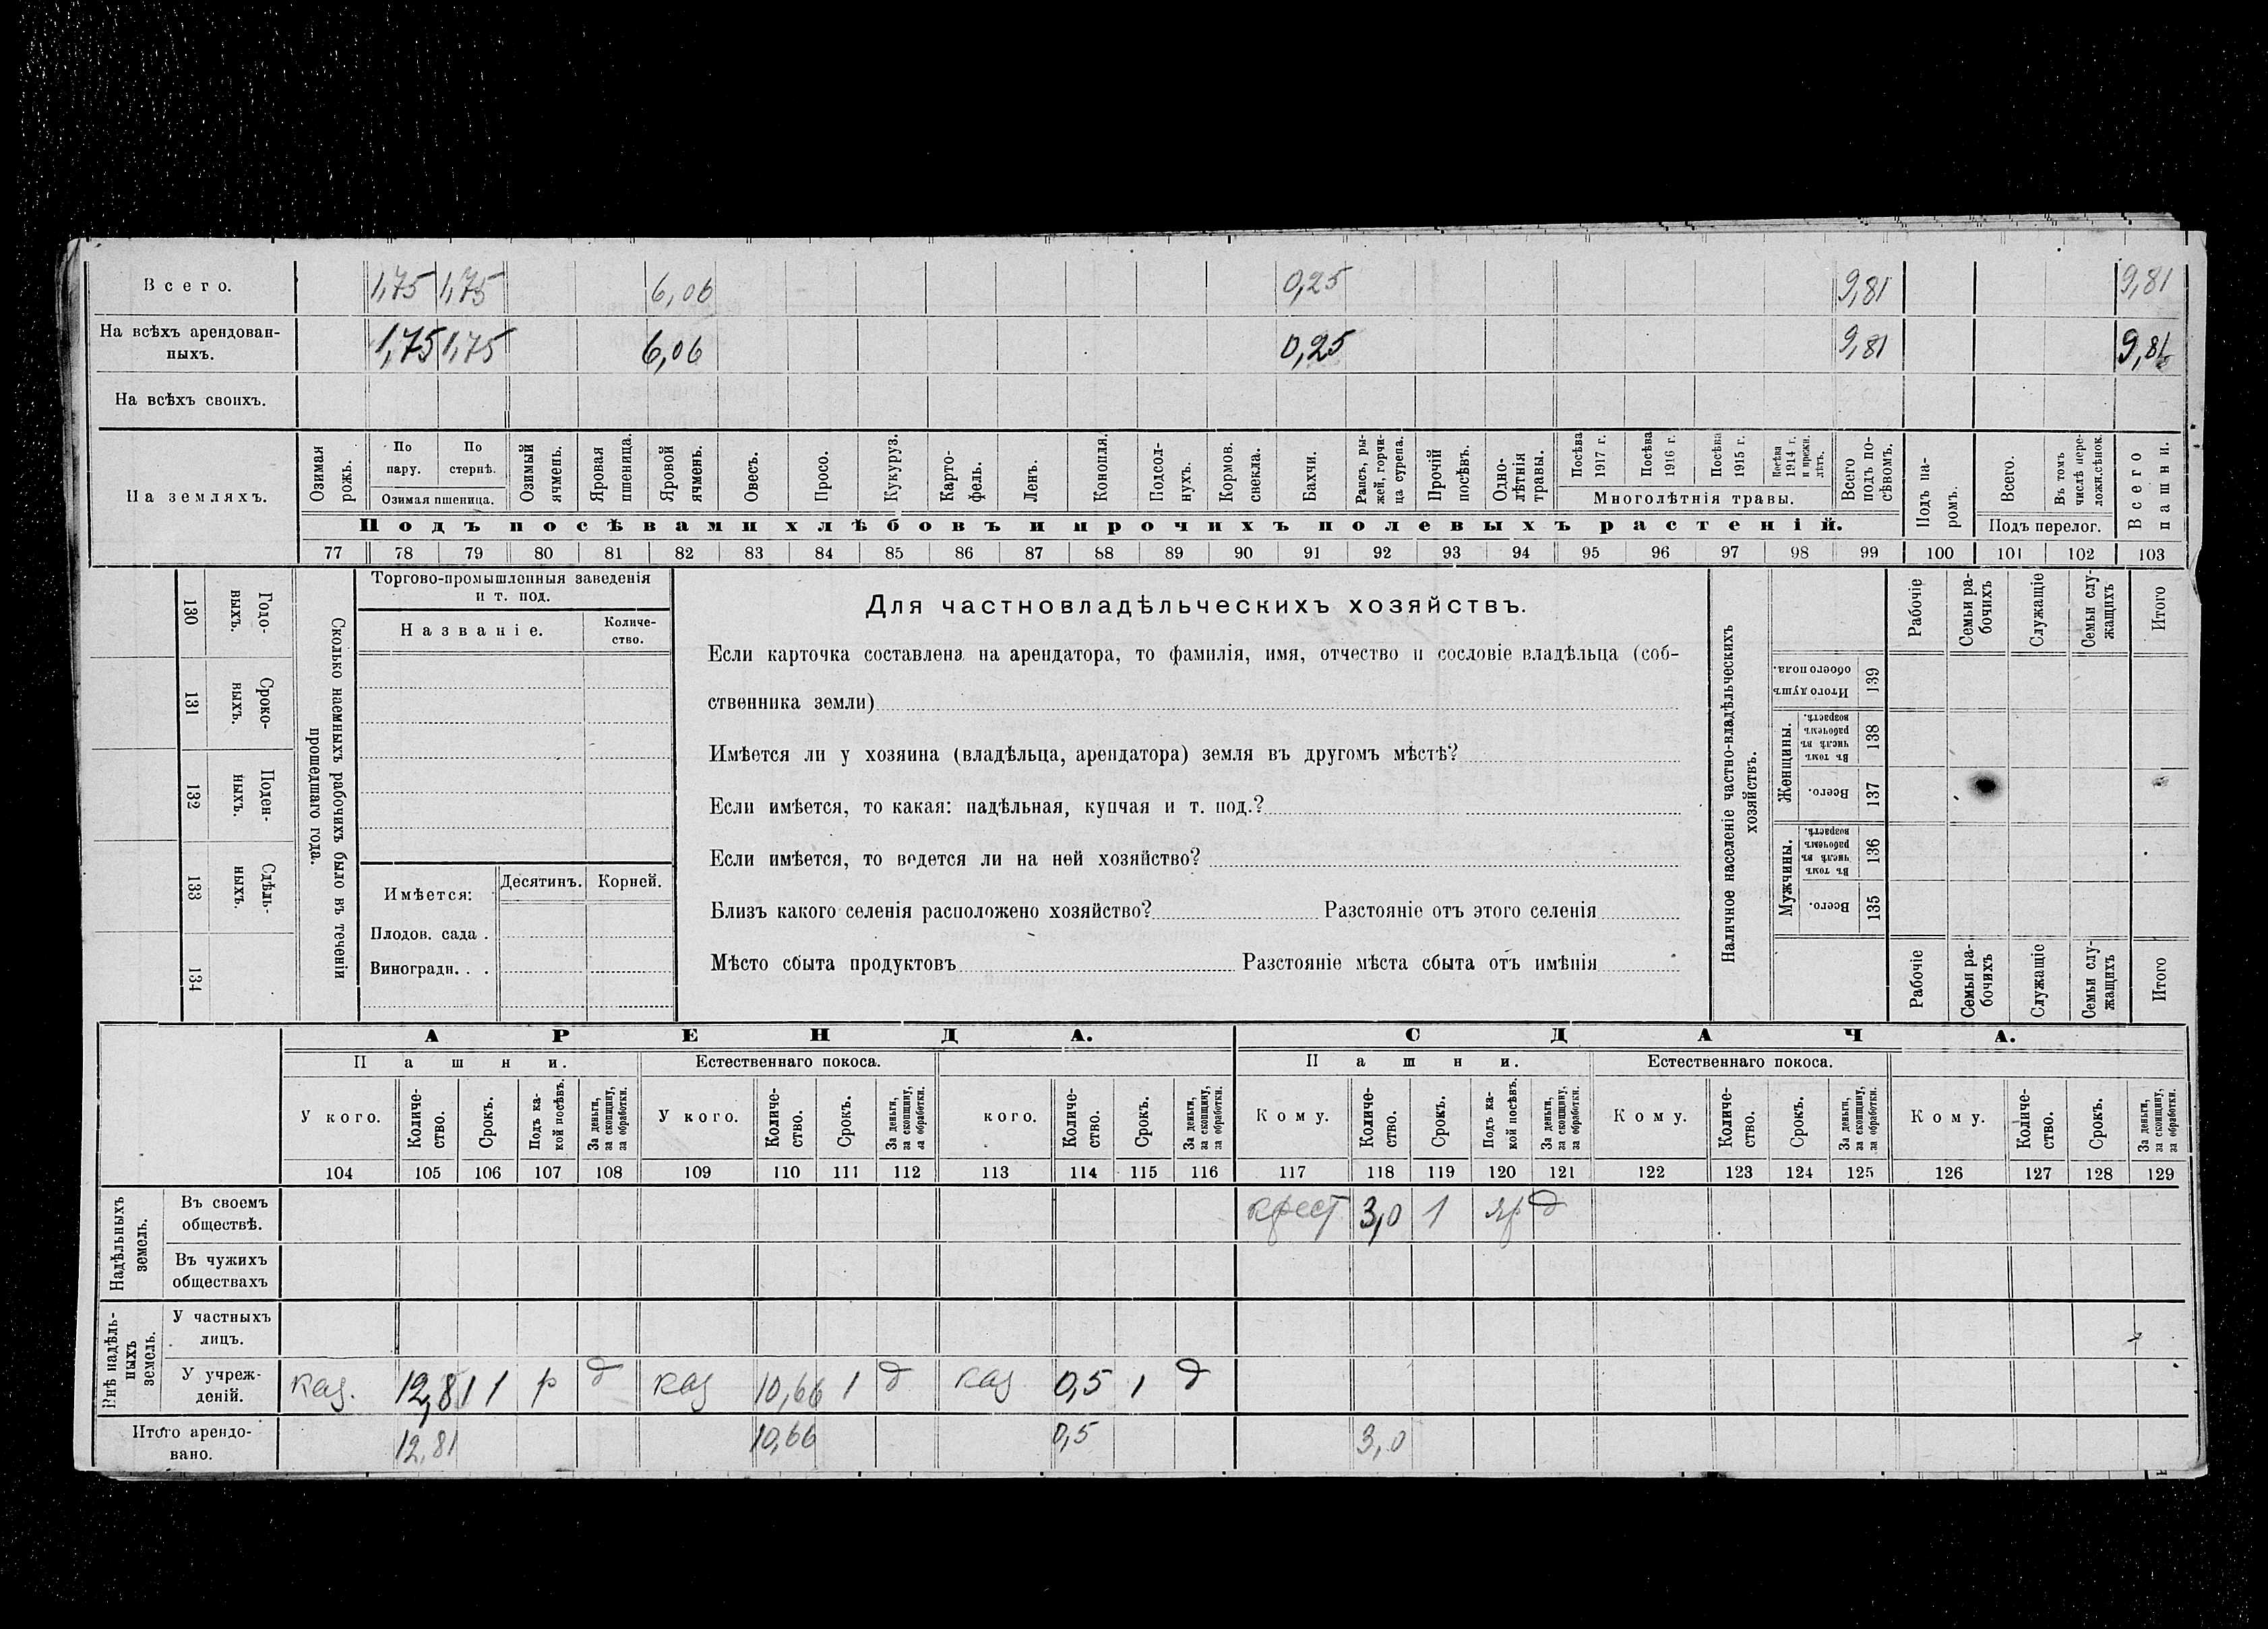 Всего. 1,75 1,75 6,06 0,25 9,81 9,81
На всѣхъ арендован-
ныхъ. 1,75 1,75 6,06 0,25 9,81 9,81
На всѣхъ своихъ.
На земляхъ.
Озимая рожь.
По пару.
По стернѣ.
Озимая пшеница.
Озимый ячмень.
Яровая пшеница.
Яровой ячмень.
Овесъ.
Просо.
Кукуруз.
Карто-
фель.
Ленъ.
Конопля.
Подсол-
нухъ.
Кормов.
свекла.
Бахчи.
Рапсъ, ры-
жей, горчи-
ца сурепа.
Прочій
посѣвъ.
Одно-
лѣтнія
травы.
Посѣва
1917 г.
Посѣва
1916 г.
Посѣва
1915 г.
Посѣва
1914 г.
и прежн.
лѣтъ.
Многолѣтнія травы.
Всего
подъ по-
сѣвомъ.
Подъ па-
ромъ.
Всего.
Въ томъ
числѣ пере-
ложн.сѣнок.
Подъ перелог.
Всего
пашни.
Подъ посѣвами хлѣбовъ и прочихъ полевыхъ растеній.
77 78 79 80 81 82 83 84 85 86 87 88 89 90 91 92 93 94 95 96 97 98 99 100 101 102 103
130 Годо-
ныхъ.
131 Сроко-
ныхъ.
132 Поден-
ныхъ.
133 Сдѣль-
ныхъ.
134
Сколько наемныхъ рабочихъ было въ теченіи
прошедшаго года.
Торгово-промышленныя заведенія
и т. под.
Названіе.
Количе-
ство.
Имѣется:
Десятинъ.
Корней.
Плодов. сада .
Виноградн. . .
Для частновладѣльческихъ хозяйствъ.
Если карточка составлена на арендатора, то фамилія, имя, отчество и сословіе владѣльца (соб-
ственника земли)
Имѣется ли у хозяина (владѣльца, арендатора) земля въ другомъ мѣстѣ?
Если имѣется, то какая: надѣльная, купчая и т. под.?
Если имѣется, то ведется ли на ней хозяйство?
Близъ какого селенія расположено хозяйство? Разстояніе отъ этого селенія
Мѣсто сбыта продуктовъ Разстояніе мѣста сбыта отъ имѣнія
Наличное населеніе частно-владѣльческихъ
хозяйствъ.
Рабочіе
Семьи ра-
бочихъ
Служащіе
Семьи слу-
жащихъ
Итого
Итого душъ
обоего пола.
139
Женщины.
Въ томъ
числѣ въ
рабочемъ
возрастѣ.
138
Всего.
137
Мужчины.
Въ томъ
числѣ въ
рабочемъ
возрастѣ.
136
Всего.
135
Рабочіе
Семьи ра-
бочихъ
Служащіе
Семьи слу-
жащихъ
Итого
АРЕНДА. СДАЧА.
Пашни. Естественнаго покоса. Пашни. Естественнаго покоса.
У кого.
Количе-
ство.
Срокъ.
Подъ ка-
кой посѣвъ.
За деньги,
за скопщину,
за обработки.
У кого.
Количе-
ство.
Срокъ.
За деньги,
за скопщину,
за обработки.
кого.
Количе-
ство.
Срокъ.
За деньги,
за скопщину,
за обработки.
Кому.
Количе-
ство.
Срокъ.
Подъ ка-
кой посѣвъ.
За деньги,
за скопщину,
за обработки.
Кому.
Количе-
ство.
Срокъ.
За деньги,
за скопщину,
за обработки.
Кому.
Количе-
ство.
Срокъ.
За деньги,
за скопщину,
за обработки.
104 105 106 107 108 109 110 111 112 113 114 115 116 117 118 119 120 121 122 123 124 125 126 127 128 129
Надѣльныхъ
земель.
Въ своемъ
обществѣ. крест 3,0 1 яр д
Въ чужихъ
обществахъ
Внѣ надѣль-
ныхъ
земель.
У частныхъ
лицъ.
У учреж-
деній. каз. 12,81 1 р д каз 10,66 1 д каз 0,5 1 д
Итого арендо-
вано. 12,81 10,66 0,5 3,0